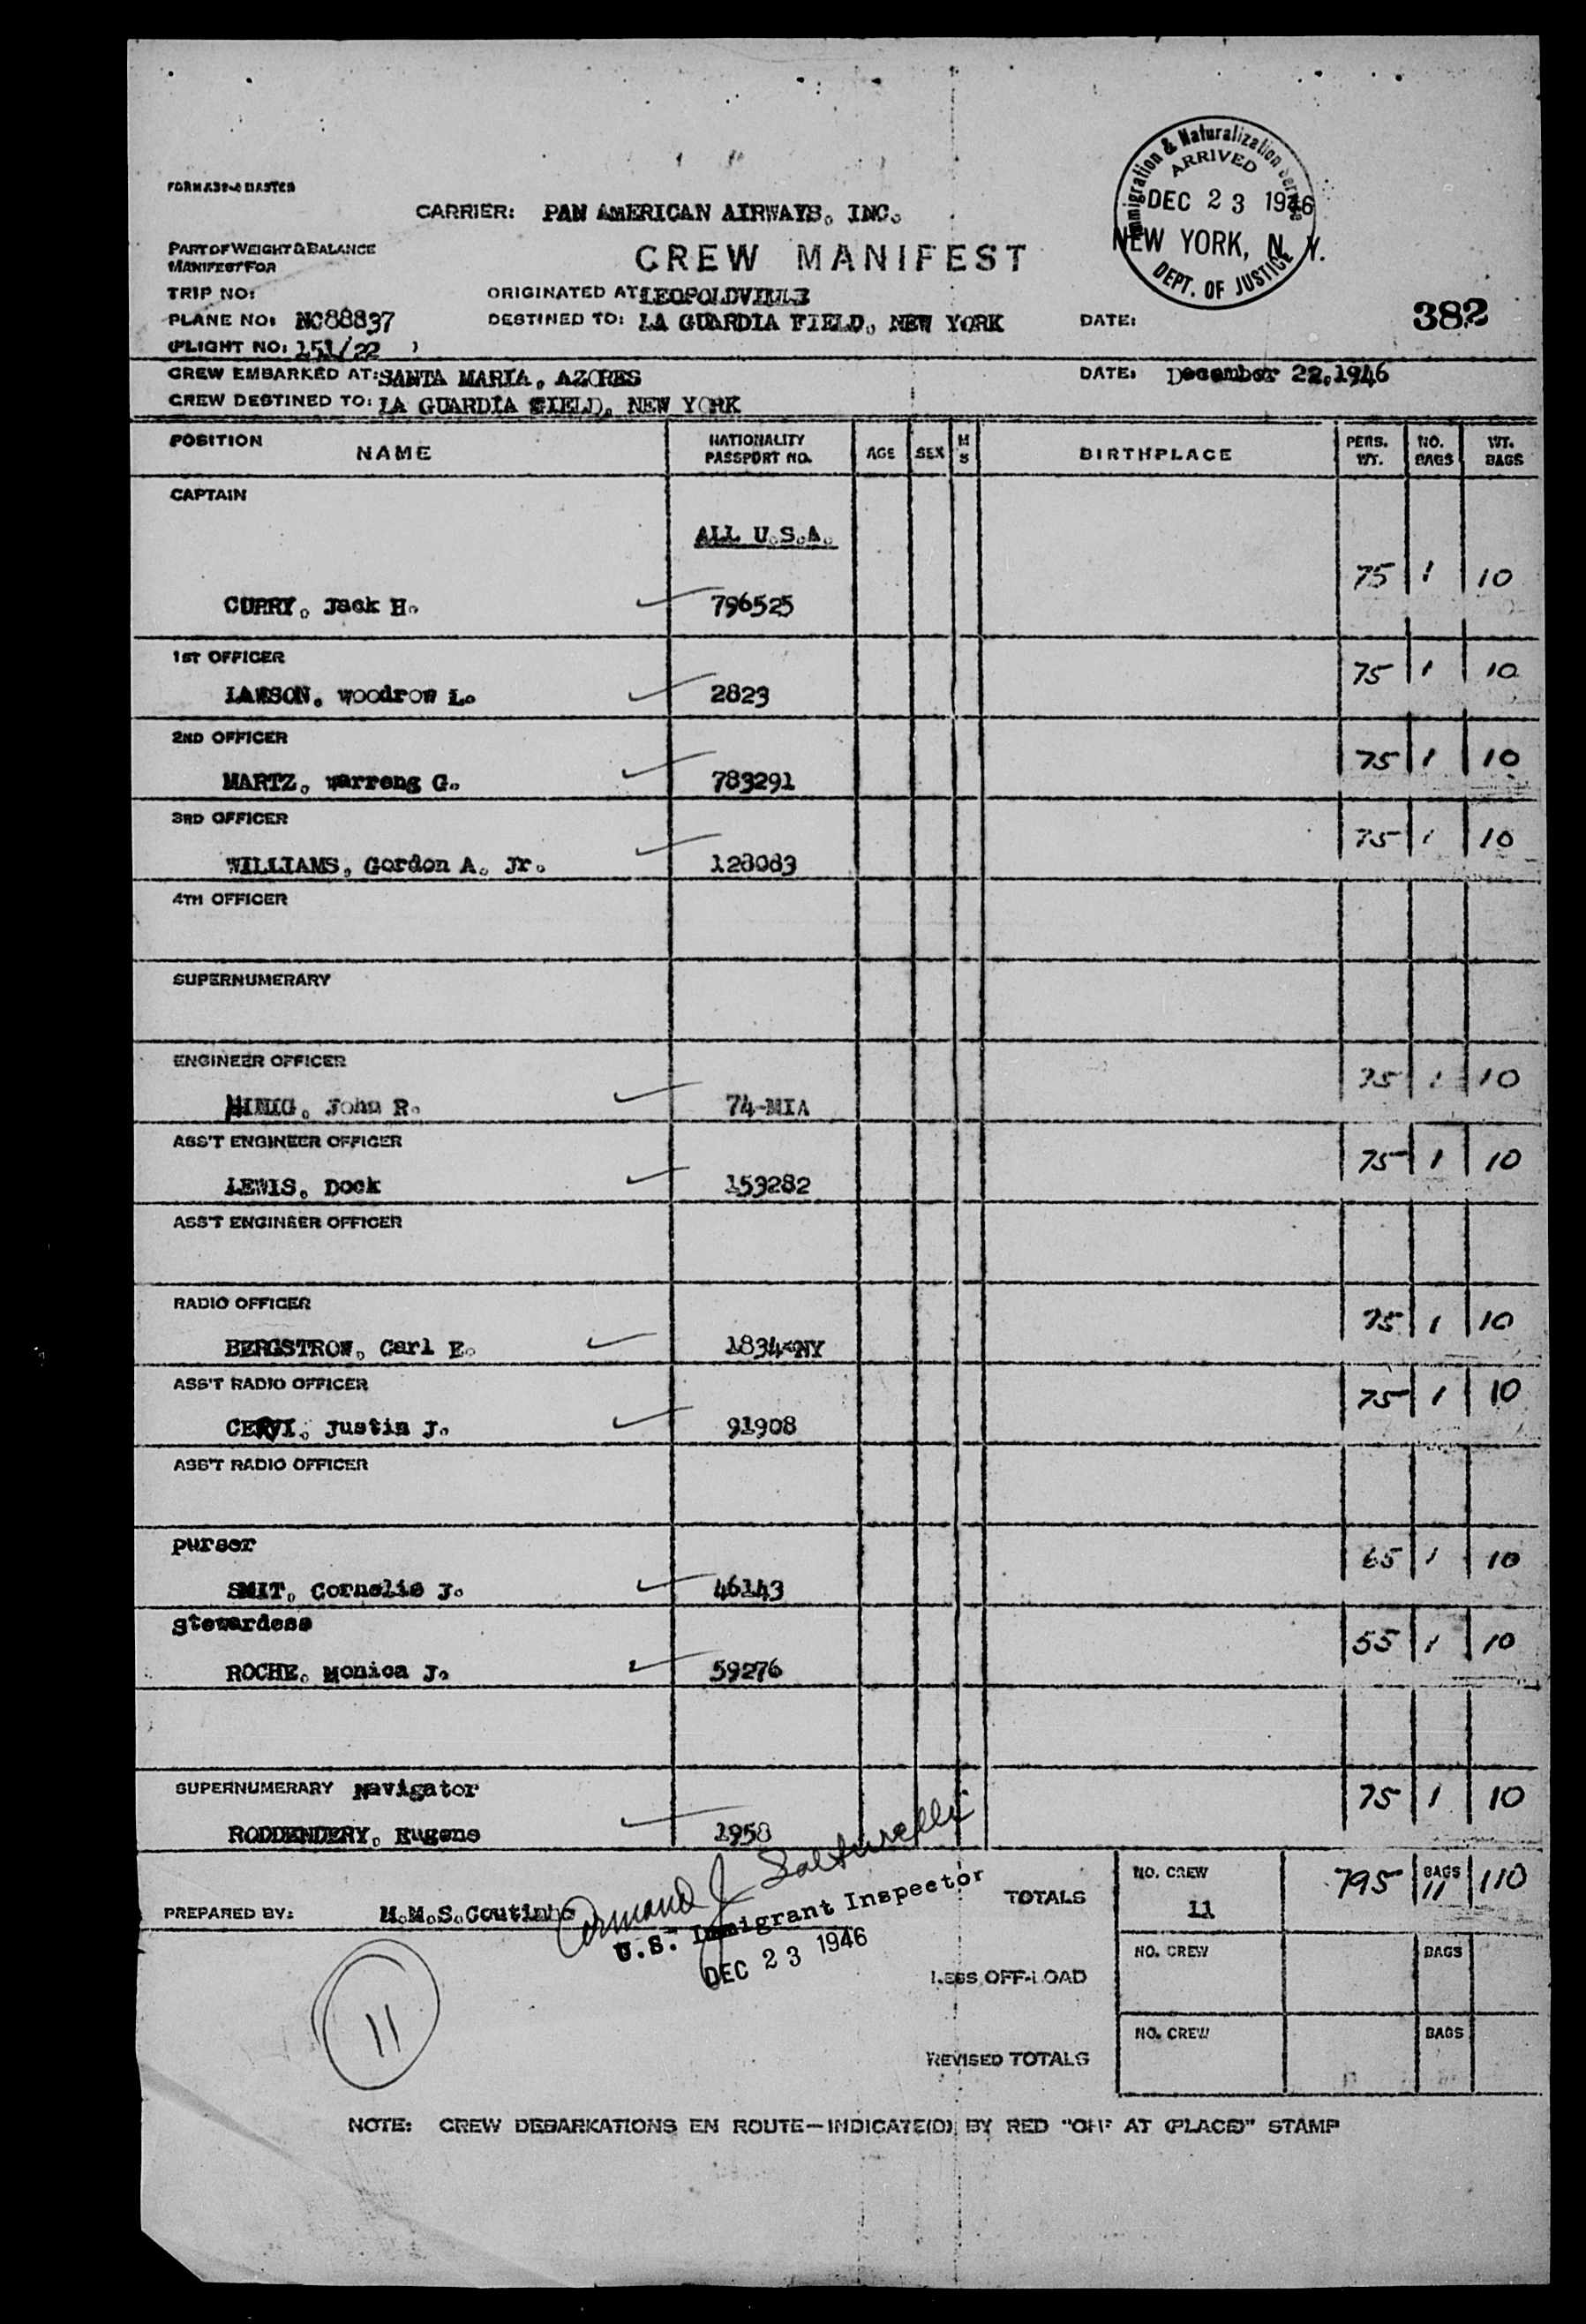 Immigration & Naturalization Service
ARRIVED
DEC 23 1946
NEW YORK, N. Y.
DEPT. OF JUSTICE
CARRIER: PAN AMERICAN AIRWAYS, INC.
PART OF WEIGHT & BALANCE
MANIFEST FOR
CREW MANIFEST
TRIP NO:
ORIGINATED AT LEOPOLDVILLE
PLANE NO: NC88837
DESTINED TO: LA GUARDIA FIELD, NEW YORK
DATE:
382
(FLIGHT NO: 151/22 )
CREW EMBARKED AT: SANTA MARIA, AZORES
DATE: December 22, 1946
CREW DESTINED TO: LA GUARDIA FIELD, NEW YORK
POSITION NAME NATIONALITY PASSPORT NO. AGE SEX M S BIRTHPLACE PERS. WT. NO. BAGS WT. BAGS
CAPTAIN
ALL U.S.A.
CURRY, Jack H. 796525 75 1 10
1ST OFFICER
LAWSON, Woodrow L. 2823 75 1 10
2ND OFFICER
MARTZ, Warreng G. 783291 75 1 10
3RD OFFICER
WILLIAMS, Gordon A. Jr. 128083 75 1 10
4TH OFFICER
SUPERNUMERARY
ENGINEER OFFICER
HIMIG, John R. 74-MIA 75 1 10
ASS'T ENGINEER OFFICER
LEWIS, Dock 153282 75 1 10
ASS'T ENGINEER OFFICER
RADIO OFFICER
BERGSTROM, Carl E. 1834-NY 75 1 10
ASS'T RADIO OFFICER
CERVI, Justin J. 91908 75 1 10
ASS'T RADIO OFFICER
Purser
SMIT, Cornelis J. 46143 65 1 10
Stewardess
ROCHE, Monica J. 59276 55 1 10
SUPERNUMERARY Navigator
RODDENDERY, Eugene 1958 75 1 10
PREPARED BY: M.M.S.Coutinho
Armand J.
U.S. Immigrant Inspector
DEC 23 1946
TOTALS NO. CREW 11 795 BAGS 11 110
LESS OFF-LOAD NO. CREW BAGS
REVISED TOTALS NO. CREW BAGS
11
NOTE: CREW DEBARKATIONS EN ROUTE—INDICATE(D) BY RED "OFF AT (PLACE)" STAMP